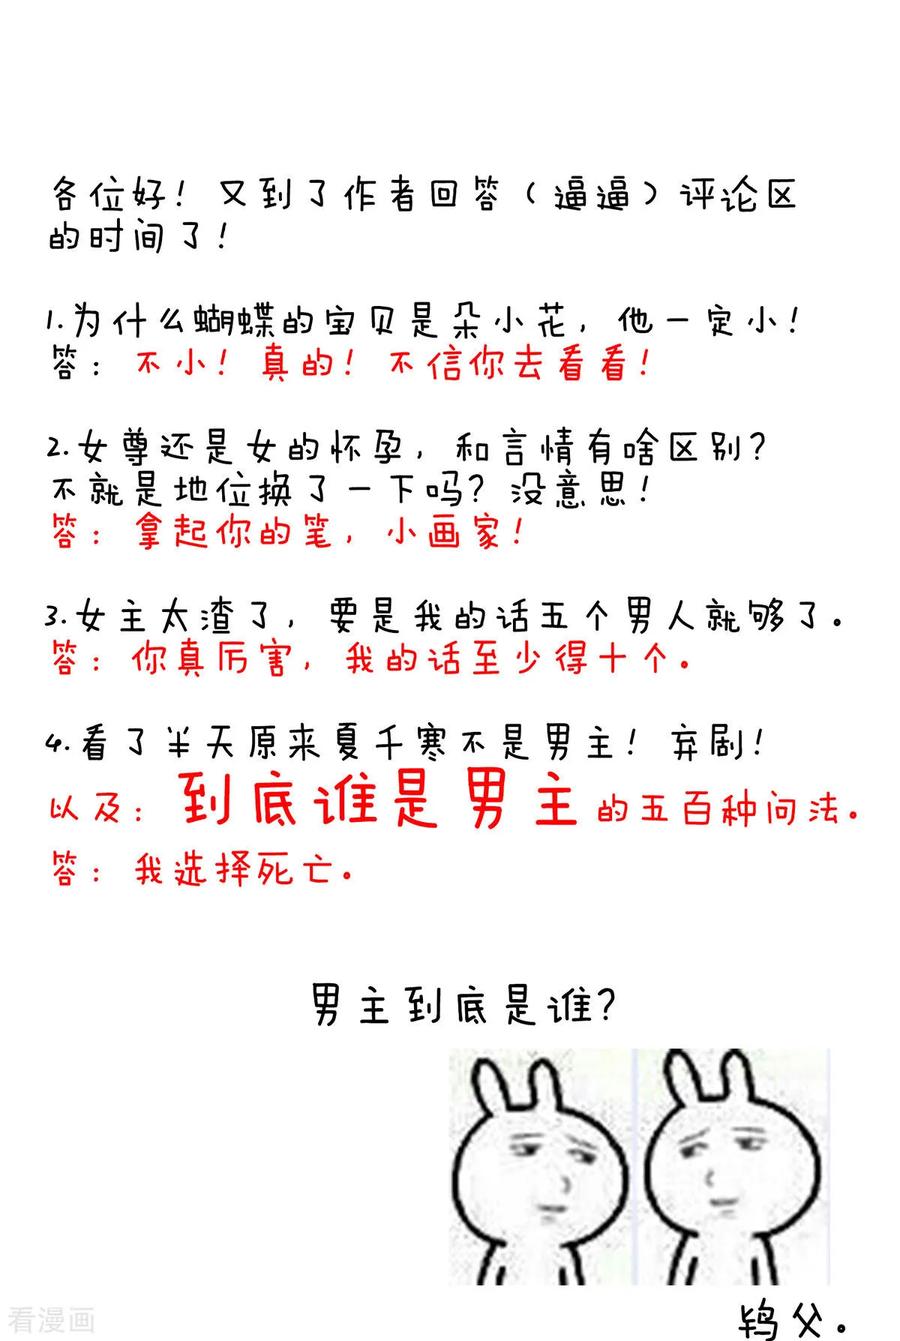 各位好！又到了作者回答（逼逼）评论区
的时间了！
1.为什么蝴蝶的宝贝是朵小花，他一定小！
答：不小！真的！不信你去看看！
2.女尊还是女的怀孕，和言情有啥区别？
不就是地位换了一下吗？没意思！
答：拿起你的笔，小画家！
3.女主太渣了，要是我的话五个男人就够了。
答：你真厉害，我的话至少得十个。
4.看了半天原来夏千寒不是男主！弃剧！
以及：到底谁是男主的五百种问法。
答：我选择死亡。
男主到底是谁？
鸨父。
看漫画